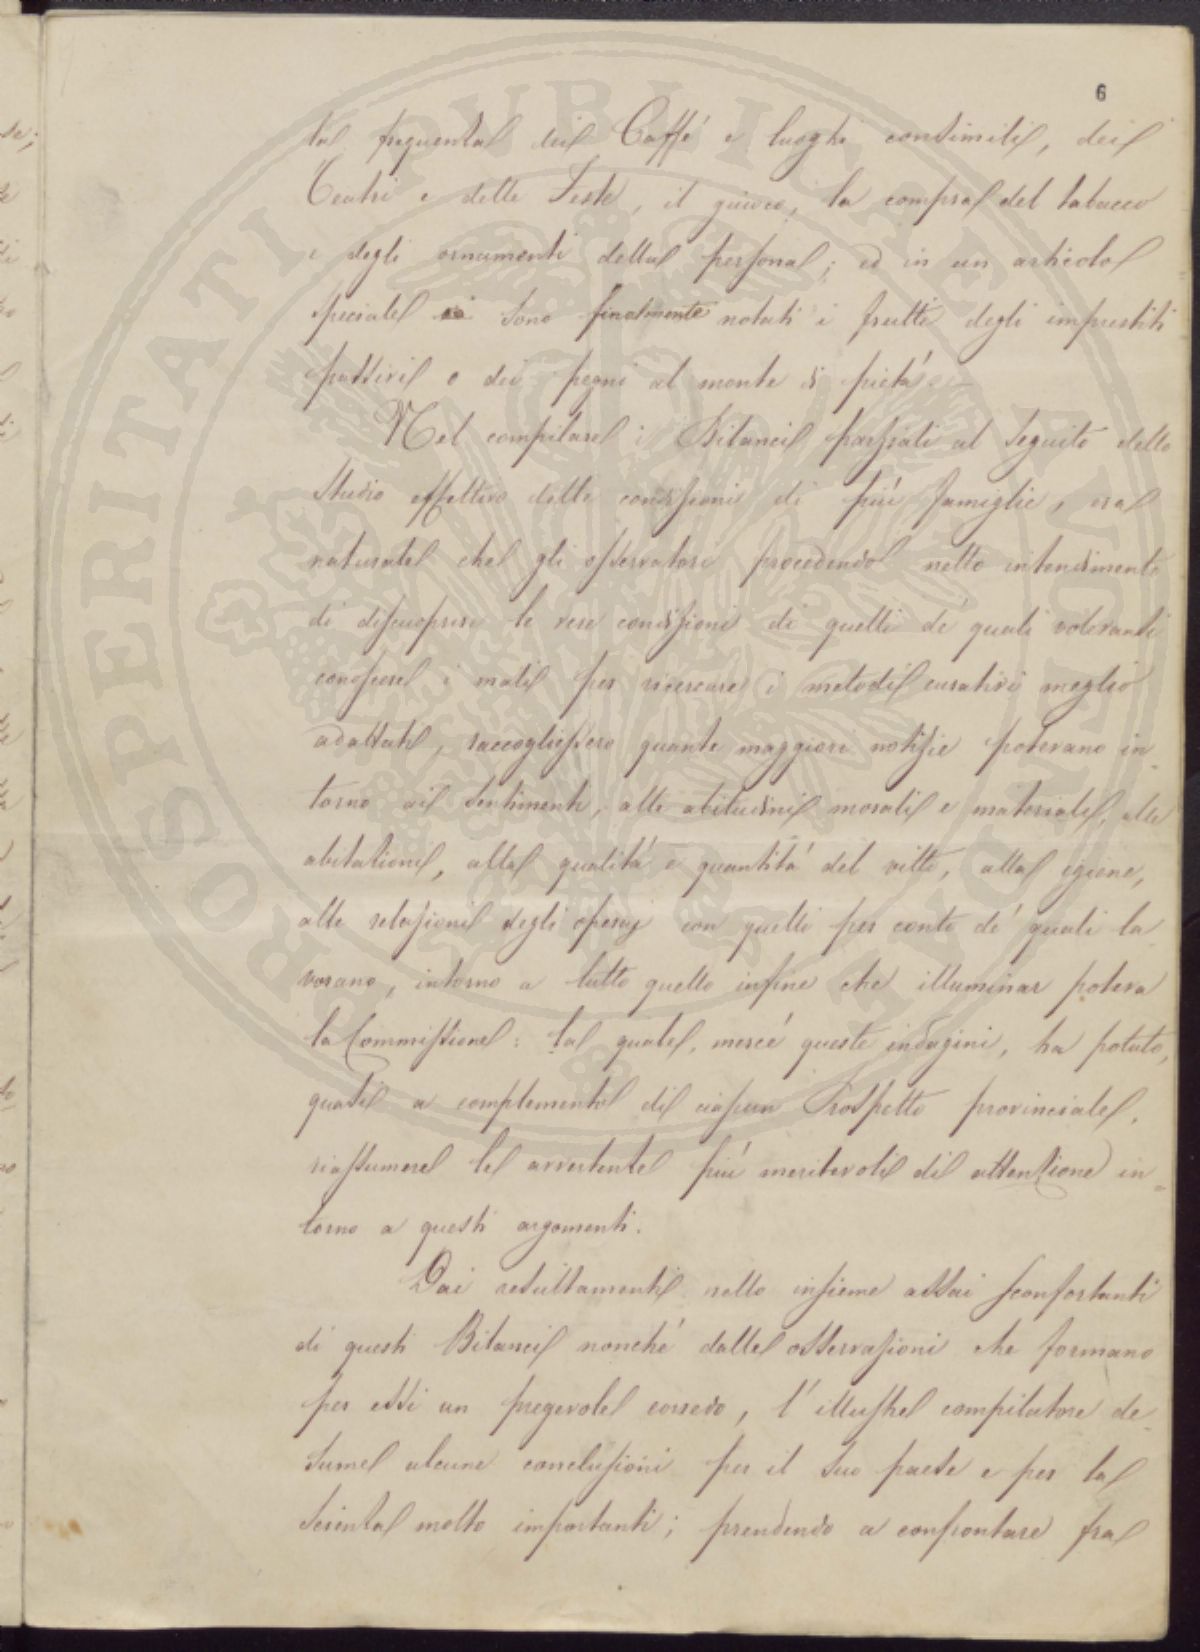 6
la frequenza dei Caffé e luoghi consimili, dei
Teatri e delle Feste, il giuoco, la compra del tabacco
e degli ornamenti della persona; ed in un articolo
speciale si sono finalmente notati i frutti degli imprestiti
passivi o dei pegni al monte di pietá
Nel compilare i Bilanci parziali al seguito dello
studio effettivo delle condizioni di piú famiglie, era
naturale che gli osservatori procedendo nello intendimento
di discuoprire le vere condizioni di quelli dé quali volevansi
conoscere i mali per ricercare i metodi curativi meglio
adattati, raccogliessero quante maggiori notizie potevano in-
torno ai sentimenti, alle abitudini morali e materiali, alle
abitazioni, alla qualitá e quantitá del vitto, alla igiene,
alle relazioni degli operaj con quelli per conto dé quali la
vorano, intorno a tutto quello infine che illuminar poteva
la Commissione: la quale, mercé queste indagini, ha potuto,
quasi a complemento di ciascun Prospetto provinciale,
riassumere le avvertenze piú meritevoli di attenzione in-
torno a questi argomenti.
Dai resultamenti nello insieme assai sconfortanti
di questi Bilanci nonché dalle osservazioni che formano
per essi un pregevole corredo, l'illustre compilatore de-
sume alcune conclusioni per il suo paese e per la
scienza molto importanti; prendendo a confrontare fra
PROSPERITATI PVBLICAE AVGENDAE